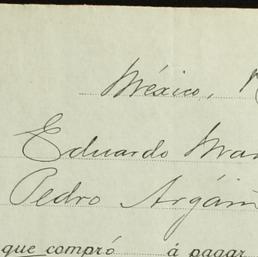 México,
Eduardo
Pedro
que compró á pagar